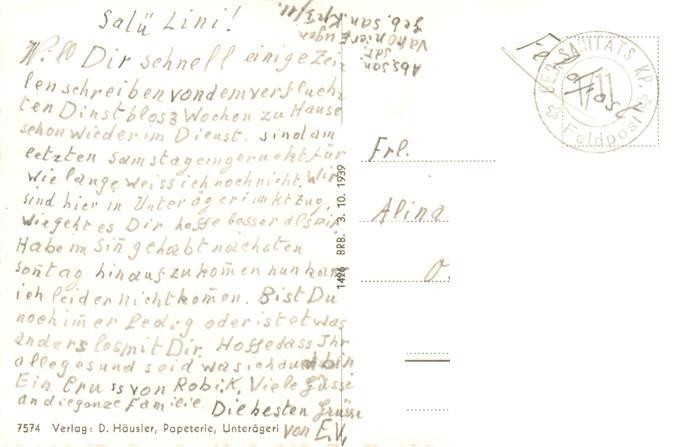 Salü Lini!
Will Dir schnell einige Zei-
len schreiben von dem verfluch-
ten Dinst blos 3 Wochen zu Hause
schon wieder im Dienst. sind am
letzten Samstag eingerückt für
wie lange weiss ich noch nicht. Wir
sind hier in Unterägeri im Kt Zug,
wie geht es Dir hoffe besser als mir
Habe im Sin̄ gehabt nächsten
son̄tag hinaus zu kom̄en nun kan̄
ich leider nicht kom̄en. Bist Du
noch im̄er Ledig oder ist etwas
anders los mit Dir. Hoffe dass Ihr
alle gesund seid was ich auch bin
Ein Gruss von Robi K. Viele Grüsse
an die ganze Familie. Die besten Grüsse
von E.V.
7574 Verlag: D. Häusler, Papeterie, Unterägeri
1426 BRB. 3. 10. 1939
Abs. San.
Geb. San. Kp. 3/11.
GEB. SANITÄTS KP.
Feldpost
Feldpost
Frl.
Alina